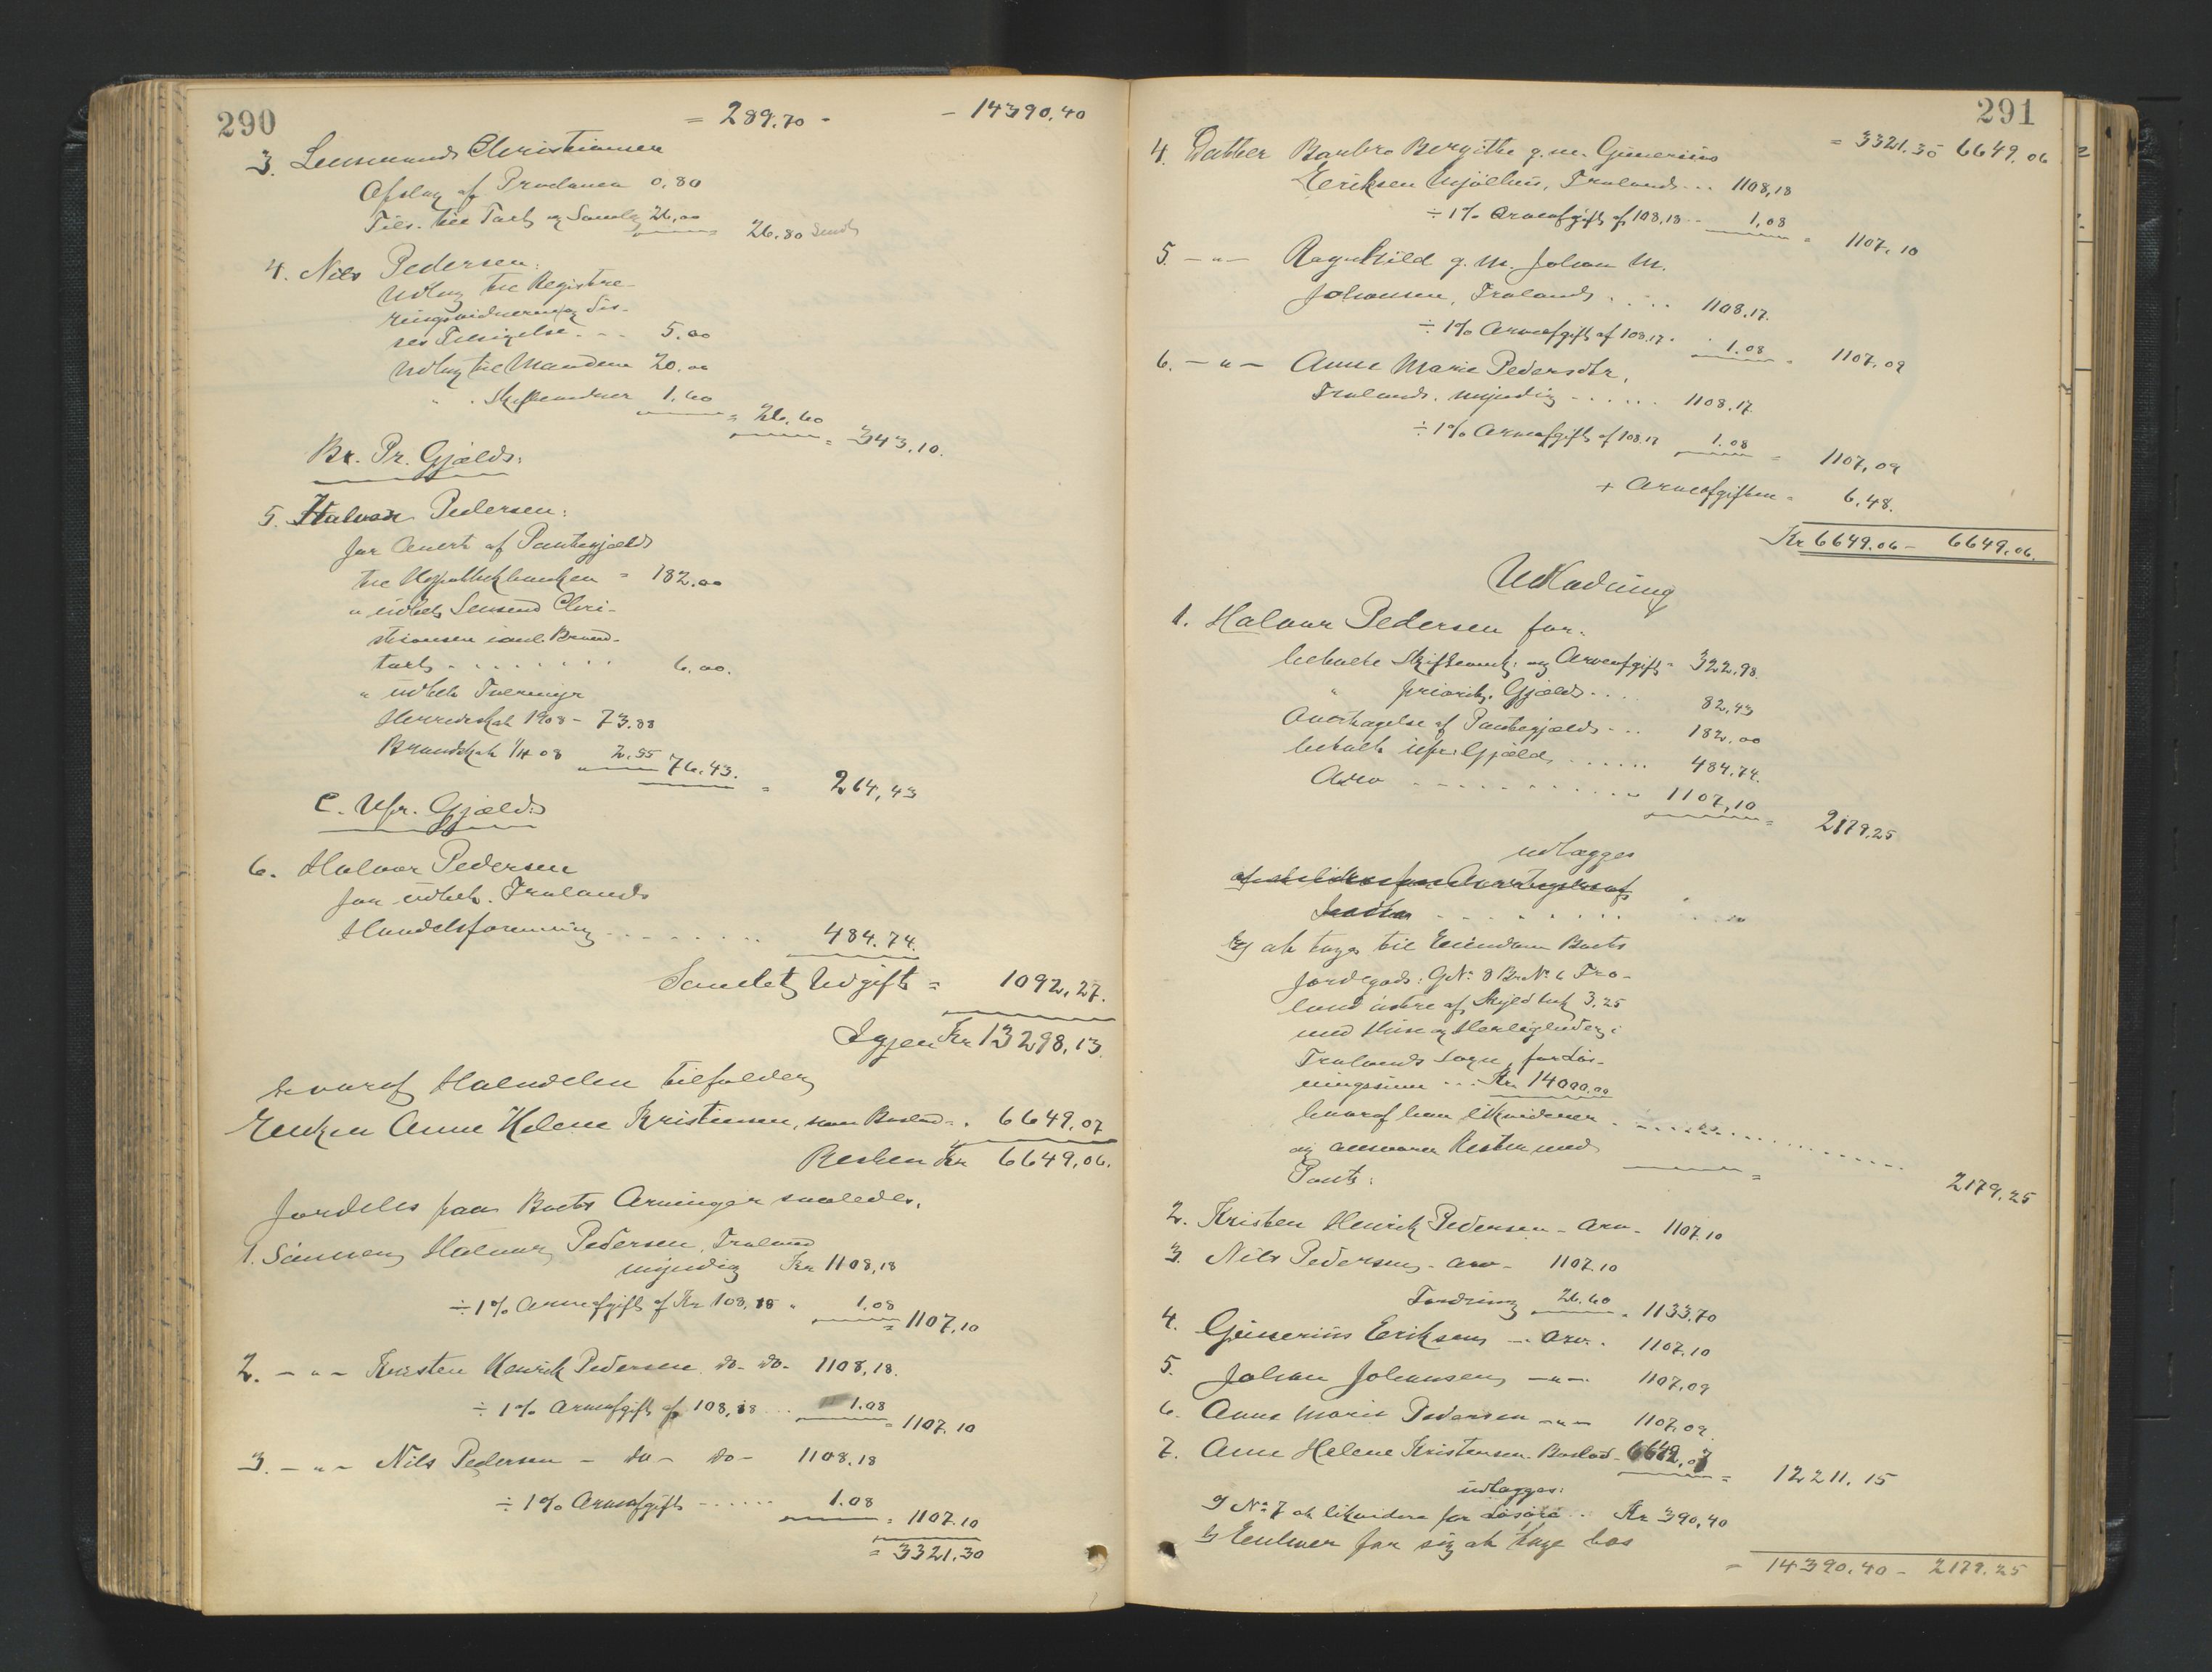 290
= 289.70 - - 14390,40
3. Lensmand Christiansen
Afslag af Proclama 0,80
Tils. til Taxt og Saml. 26,00 = 26.80
4. Nils Pedersen:
Udlæg til Registre-
ringsvidnerne og dis-
ses Tilsigelse - - 5.00
Udlæg til Mændene 20.00
" . Skiftevidner 1.60 = 26,60 = 343,10.
Br. Pr. Gjæld:
5. Halvor Pedersen:
for Overt. af Pantegjæld
til Hypothekbanken = 182.00
" udbet. Lensmd Chri-
stiansen Brand-
taxt . . . . . . . 6.00.
" udbet.
Herredskat 1908 - 73.88
Brandskat 08 2.55 76.43. = 264,43
C. Upr. Gjæld:
6. Halvor Pedersen
for udbet. Frolands
Handelsforening . . . . . . . 484.74.
Samlet Udgift = 1092,27.
Igjen Kr 13298,13.
hvoraf Halvdelen tilfalder
Enken Anne Helene Kristensen, som Boslod - . 6649,07
Resten Kr 6649,06.
fordeles paa Boets Arvinger saaledes.
1. Sønnen Halvor Pedersen, Froland
myndig Kr 1108,18
÷ 1% Arveafgift af Kr 108,18 . 1.08 = 1107,10
2. - " - Kristen Henrik Pedersen do - do - 1108,18.
÷ 1% Arveafgift af 108,18 ... 1.08 = 1107.10
3. - " - Nils Pedersen - do - do - 1108.18
÷ 1% Arveafgift - ..... 1.08 = 1107.10
= 3321.30
291
= 3321.30 6649.06
4. Datter Barbro Bergithe g.m. Gunerius
Eriksen Mjølhus, Froland... 1108,18
÷ 1% Arveafgift af 108,18 -- 1,08 = 1107,10
5. - " - Ragnhild g. m. Johan M.
Johansen, Froland . . . . 1108.17.
÷ 1% Arveafgift af 108.17. . 1.08 = 1107,09
6. - " - Anne Marie Pedersdtr,
Froland. myndig - . . . . . 1108.17.
÷ 1% Arveafgift af 108.17 1.08 = 1107,09
+ Arveafgiften = 6,48.
Kr 6649.06 - 6649,06.
Udlodning
1. Halvor Pedersen for:
betalte Skifteomk. og Arveafgift = 322.98
" priorit. Gjæld .... 82,43
Overtagelse af Pantegjæld - .. 182.00
betalt upr. Gjæld ...... 484.74.
Arv - - - - - - - - - - 1107,10 = 2179,25
udlægges
b) at tage til Eiendom Boets
Jordegods: GNo 8 BrNo 6 Fro-
land østre af Skyld 3.25
med Huse og Herligheder i
Frolands Sogn, for Løs-
ningssum ... Kr 14000.00
hvoraf han likviderer . . . . . . . . . . .
og ansvarer Resten med
Pant: = 2179,25
2. Kristen Henrik Pedersen - Arv - 1107.10
3. Nils Pedersen - Arv - 1107.10
Fordring 26.60 = 1133,70
4. Gunerius Eriksen - . Arv . 1107.10
5. Johan Johansen - " - . 1107,09
6. Anne Marie Pedersen - " - 1107,09.
7. Anne Helene Kristensen Boslod - 6649,07 = 12211,15
udlægges:
a) No 7 at likvidere for Løsøre .. Kr 390,40
b) Enhver for sig at tage hos
= 14390.40 - 2179.25